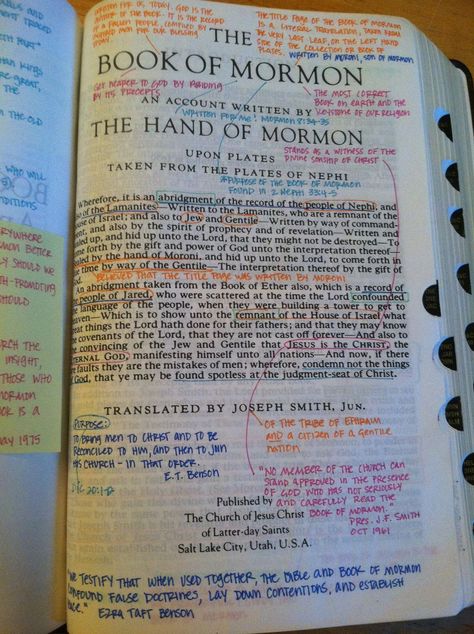 WRITTEN FOR US TODAY. GOD IS THE
AUTHOR OF THE BOOK. IT IS THE RECORD
OF A FALLEN PEOPLE, COMPILED BY
INSPIRED MEN FOR OUR BLESSING
TODAY.
THE TITLE PAGE OF THE BOOK OF MORMON
IS A LITERAL TRANSLATION, TAKEN FROM
THE VERY LAST LEAF, ON THE LEFT HAND
SIDE OF THE COLLECTION OR BOOK OF
PLATES. WRITTEN BY MORONI, SON OF MORMON
THE
BOOK OF MORMON
GET NEARER TO GOD BY ABIDING
BY ITS PRECEPTS
THE MOST CORRECT
BOOK ON EARTH AND THE
KEYSTONE OF OUR RELIGION
AN ACCOUNT WRITTEN BY
WRITTEN FOR ME! MORMON 8:34-35
THE HAND OF MORMON
STANDS AS A WITNESS OF THE
DIVINE SONSHIP OF CHRIST
UPON PLATES
TAKEN FROM THE PLATES OF NEPHI
PURPOSE OF THE BOOK OF MORMON
FOUND IN 2 NEPHI 33:4-5
Wherefore, it is an abridgment of the record of the people of Nephi, and
also of the Lamanites—Written to the Lamanites, who are a remnant of the
house of Israel; and also to Jew and Gentile—Written by way of command-
ment, and also by the spirit of prophecy and of revelation—Written and
sealed up, and hid up unto the Lord, that they might not be destroyed—To
come forth by the gift and power of God unto the interpretation thereof—
Sealed by the hand of Moroni, and hid up unto the Lord, to come forth in
due time by way of the Gentile—The interpretation thereof by the gift of
God.
BELIEVED THAT THE TITLE PAGE WAS WRITTEN BY MORONI
An abridgment taken from the Book of Ether also, which is a record of
the people of Jared, who were scattered at the time the Lord confounded
the language of the people, when they were building a tower to get to
heaven—Which is to show unto the remnant of the House of Israel what
great things the Lord hath done for their fathers; and that they may know
the covenants of the Lord, that they are not cast off forever—And also to
the convincing of the Jew and Gentile that JESUS is the CHRIST, the
ETERNAL GOD, manifesting himself unto all nations—And now, if there
are faults they are the mistakes of men; wherefore, condemn not the things
of God, that ye may be found spotless at the judgment-seat of Christ.
TRANSLATED BY JOSEPH SMITH, JUN.
OF THE TRIBE OF EPHRAIM
AND A CITIZEN OF A GENTILE
NATION
PURPOSE:
TO BRING MEN TO CHRIST AND TO BE
RECONCILED TO HIM, AND THEN TO JOIN
HIS CHURCH - IN THAT ORDER.
E.T. BENSON
"NO MEMBER OF THE CHURCH CAN
STAND APPROVED IN THE PRESENCE
OF GOD WHO HAS NOT SERIOUSLY
AND CAREFULLY READ THE
BOOK OF MORMON."
PRES. J.F. SMITH
OCT 1961
Published by
The Church of Jesus Christ
of Latter-day Saints
Salt Lake City, Utah, U.S.A.
"WE TESTIFY THAT WHEN USED TOGETHER, THE BIBLE AND BOOK OF MORMON
CONFOUND FALSE DOCTRINES, LAY DOWN CONTENTIONS, AND ESTABLISH
PEACE." EZRA TAFT BENSON